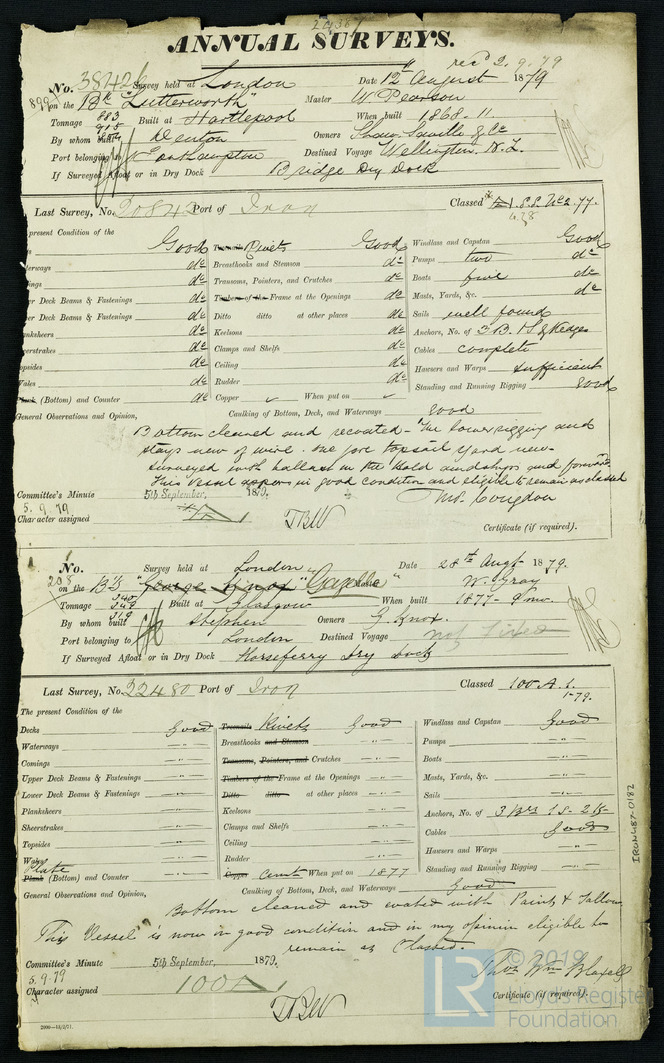 ANNUAL SURVEYS.
rec'd 2.9.79
No. 38426 Survey held at London Date 12 August 1879
899 on the Bk "Lutterworth" Master W Pearson
Tonnage 883 Built at Hartlepool When built 1868-11
By whom built Denton Owners Shaw Saville & Co
Port belonging to Southampton Destined Voyage Wellington N.Z.
If Surveyed Afloat or in Dry Dock Bridge Dry Dock
Last Survey, No. 20843 Port of Iron Classed S.S. No 2.77.
6.78
present Condition of the
Good Treenails Rivets Good Windlass and Capstan Good
terways do Breasthooks and Stemson do Pumps two do
ings do Transoms, Pointers, and Crutches do Boats five do
er Deck Beams & Fastenings do Timbers of the Frame at the Openings do Masts, Yards, &c. do
er Deck Beams & Fastenings do Ditto ditto at other places do Sails well found
anksheers do Keelsons do Anchors, No. of 3 B. 1 S. & Kedges
eerstrakes do Clamps and Shelfs do Cables complete
opsides do Ceiling do Hawsers and Warps sufficient
ales do Rudder do Standing and Running Rigging good
Plank (Bottom) and Counter do Copper When put on
General Observations and Opinion, Caulking of Bottom, Deck, and Waterways good
Bottom cleaned and recoated - The lower rigging and
stays new of wire. One fore topsail yard new.
Surveyed with ballast in the Hold amidships and forward.
This Vessel appears in good condition and eligible to remain as classed
Committee's Minute 5th September, 1879.
5.9.79
Character assigned
TBW
Certificate (if required).
No. Survey held at London Date 28th Augt 1879.
208 on the "Gazelle" Master W. Gray
Tonnage Built at Glasgow When built 1877-9mo
By whom built Stephen Owners G. Knox.
Port belonging to London Destined Voyage not fixed
If Surveyed Afloat or in Dry Dock Horseferry Dry Dock
Last Survey, No. 22480 Port of Iron Classed 100 A.1.
1-79.
The present Condition of the
Decks Good Treenails Rivets Good Windlass and Capstan Good
Waterways -"- Breasthooks and Stemson -"- Pumps -"-
Comings -"- Transoms, Pointers, and Crutches -"- Boats -"-
Upper Deck Beams & Fastenings -"- Timbers of the Frame at the Openings -"- Masts, Yards, &c. -"-
Lower Deck Beams & Fastenings -"- Ditto ditto at other places -"- Sails -"-
Planksheers -"- Keelsons -"- Anchors, No. of 3 Brs 1 S. 2 K-
Sheerstrakes -"- Clamps and Shelfs -"- Cables Good
Topsides -"- Ceiling -"- Hawsers and Warps -"-
Wales -"- Rudder -"- Standing and Running Rigging -"-
Plate
Plank (Bottom) and Counter -"- Copper Cemt When put on 1877
General Observations and Opinion, Caulking of Bottom, Deck, and Waterways Good
Bottom cleaned and coated with Paint & Tallow
This Vessel is now in good condition and in my opinion eligible to
remain as Classed.
Committee's Minute 5th September, 1879.
5.9.79
Thos Wm Blaxall
Character assigned 100A
Certificate (if required).
TBW
2000—13/2/71.
IRON487-0182
© 2019
LR
Lloyd's Register
Foundation